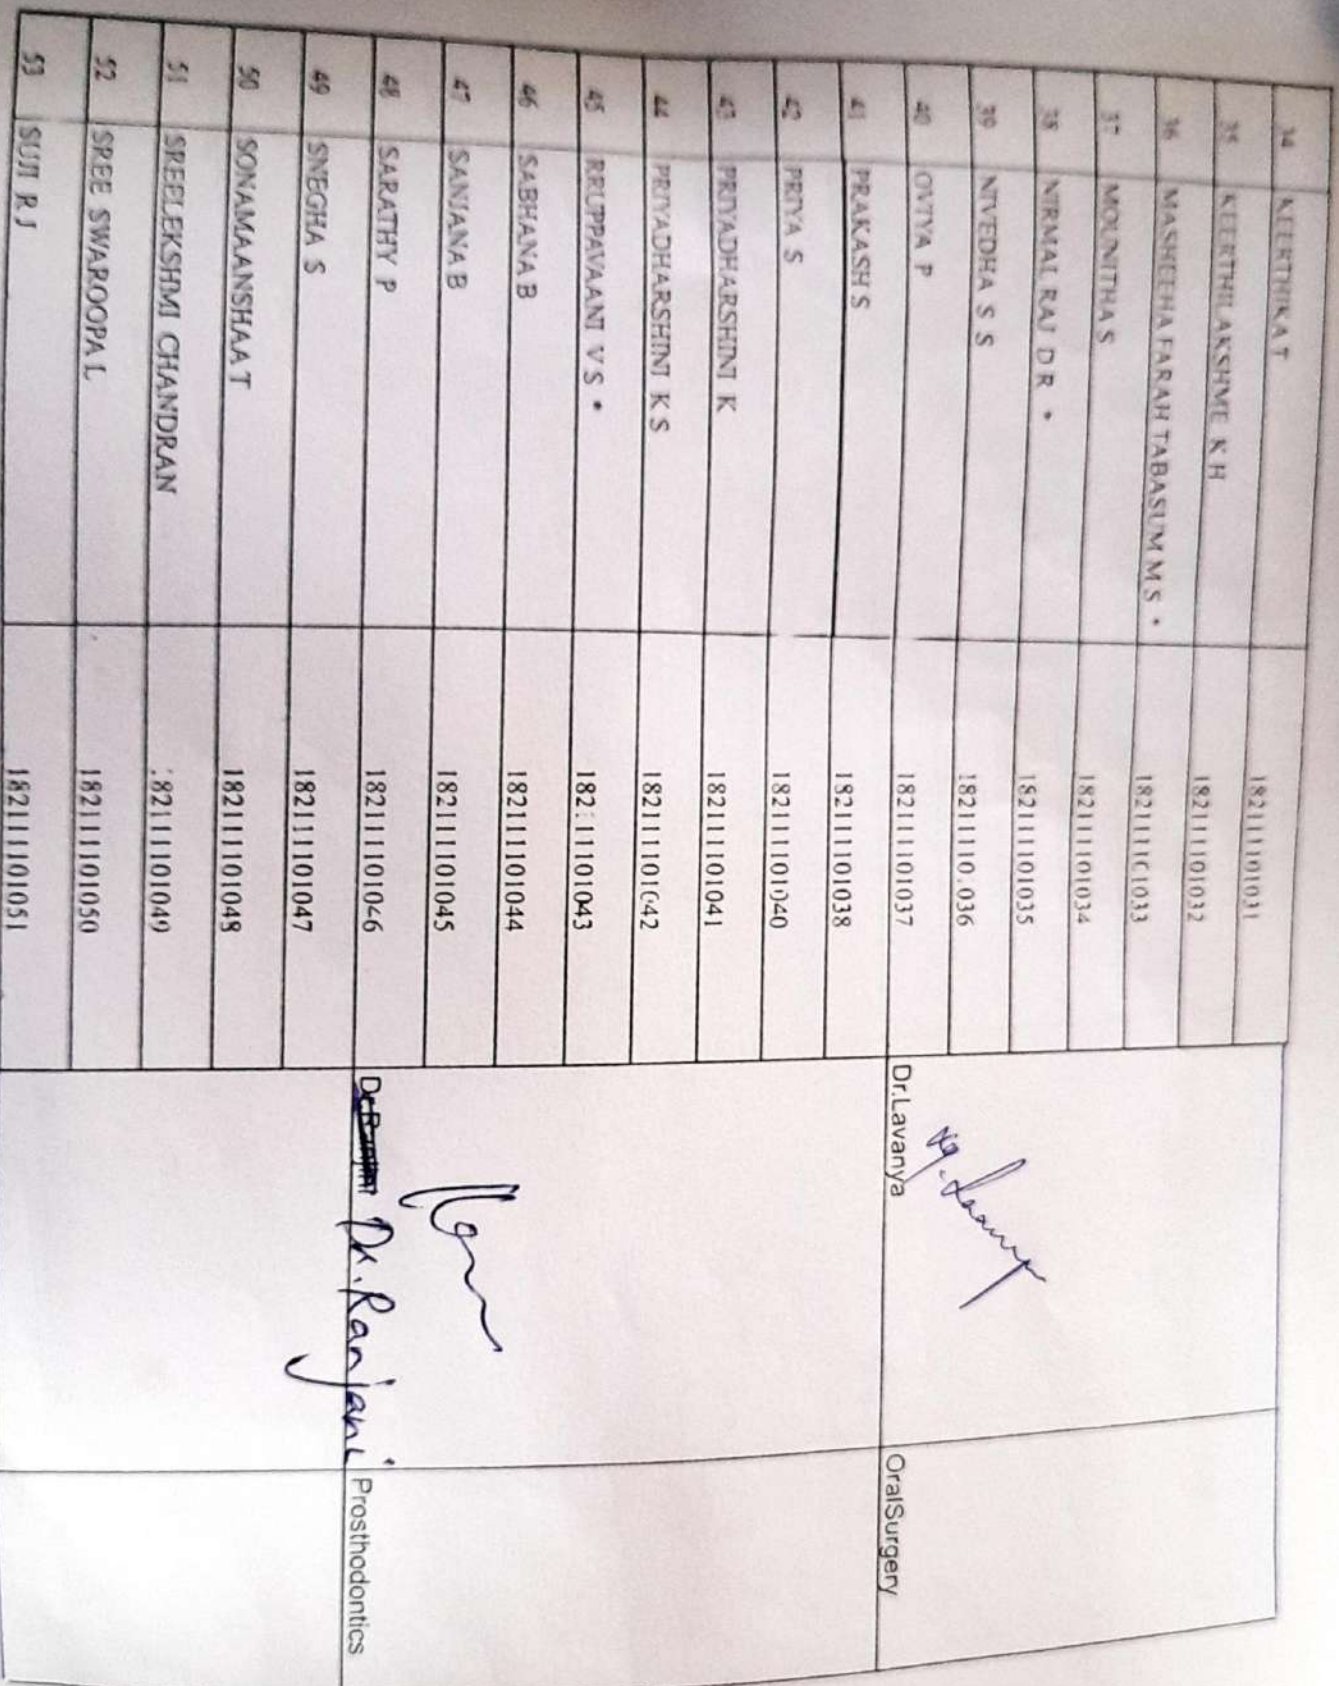 34 KEERTHIKA T 182111101031
35 KEERTHILAKSHME K H 182111101032
36 MASHEEHA FARAH TABASUM M S * 182111101033
37 MOUNITHA S 182111101034
38 NIRMAL RAJ D R * 182111101035
39 NIVEDHA S S 18211110.036
40 OVIYA P 182111101037 Dr.Lavanya OralSurgery
41 PRAKASH S 182111101038
42 PRIYA S 182111101040
43 PRIYADHARSHINI K 182111101041
44 PRIYADHARSHINI K S 182111101042
45 RRUPPAVAANI V S * 182111101043
46 SABHANA B 182111101044
47 SANJANA B 182111101045
48 SARATHY P 182111101046 Dr. Ranjani Prosthodontics
49 SNEGHA S 182111101047
50 SONAMAANSHAA T 182111101048
51 SREELEKSHMI CHANDRAN 182111101049
52 SREE SWAROOPA L 182111101050
53 SUJI R J 182111101051